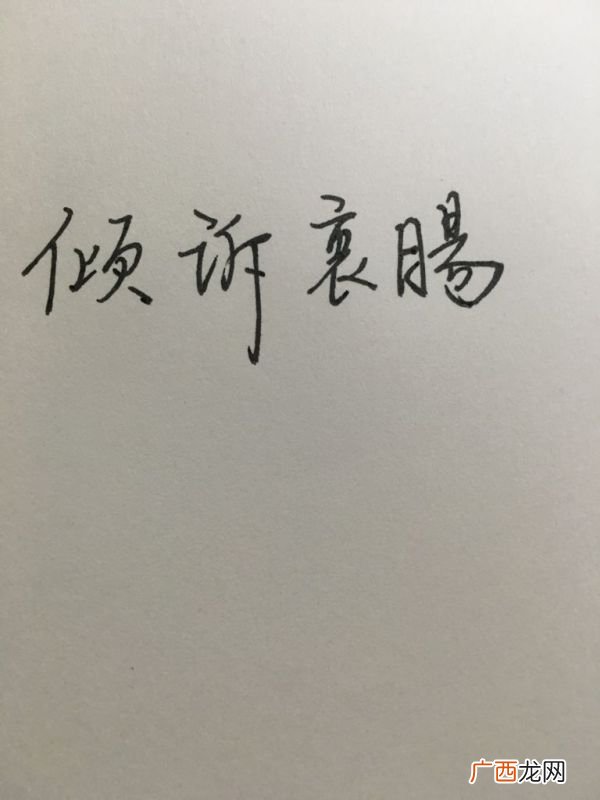 倾诉衷腸
广西龙网